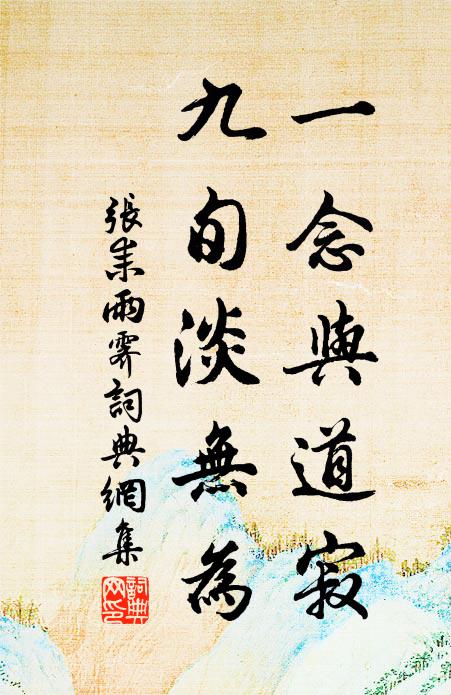 一念與道寂
九旬淡無為
張耒雨霽詞典網集
詞典
网印